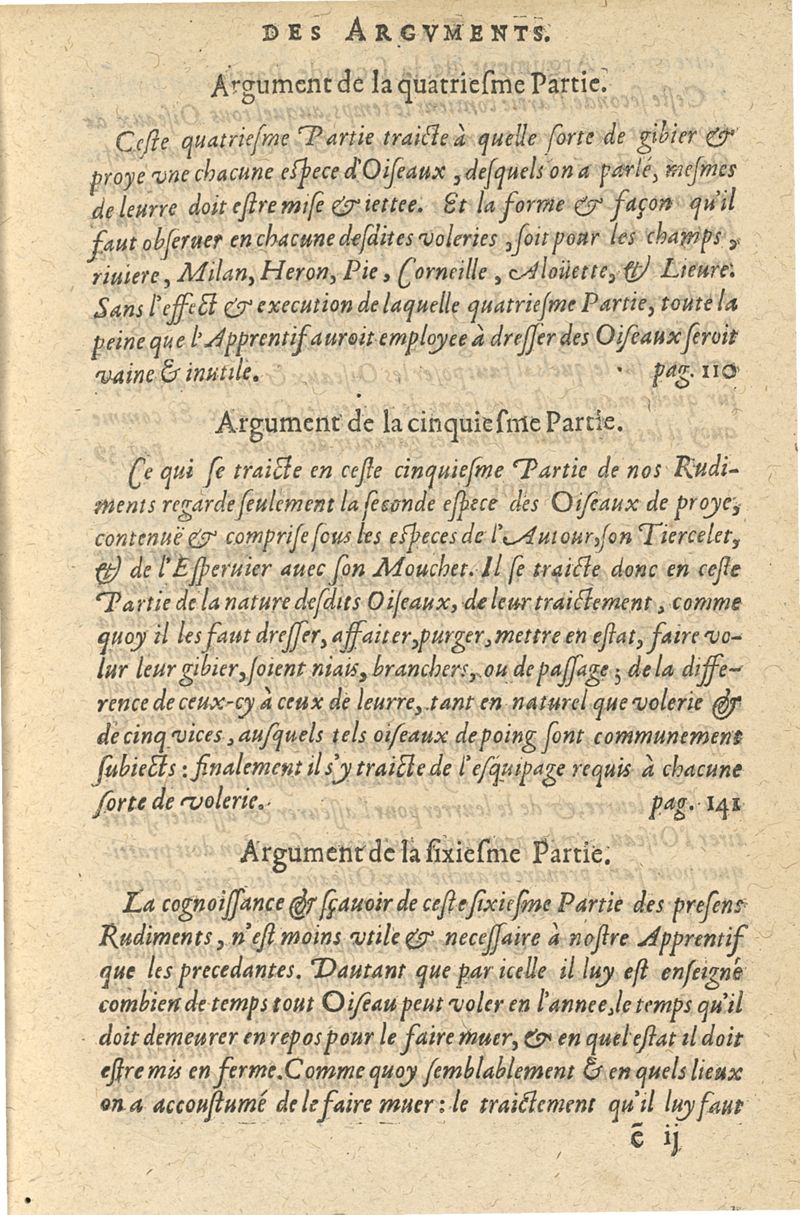 DES ARGVMENTS.
Argument de la quatriesme Partie.
Ceste quatriesme Partie traicte à quelle sorte de gibier &
proye vne chacune espece d'Oiseaux, desquels on a parlé, mesmes
de leurre doit estre mise & iettee. Et la forme & façon qu'il
faut obseruer en chacune desdites voleries, soit pour les champs,
riuiere, Milan, Heron, Pie, Corneille, Aloüette, & Lieure.
Sans l'effect & execution de laquelle quatriesme Partie, toute la
peine que l'Apprentif auroit employee à dresser des Oiseaux seroit
vaine & inutile. pag. 110
Argument de la cinquiesme Partie.
Ce qui se traicte en ceste cinquiesme Partie de nos Rudi-
ments regarde seulement la seconde espece des Oiseaux de proye,
contenuë & comprise sous les especes de l'Autour, son Tiercelet,
& de l'Esperuier auec son Mouchet. Il se traicte donc en ceste
Partie de la nature desdits Oiseaux, de leur traictement, comme
quoy il les faut dresser, affaiter, purger, mettre en estat, faire vo-
lur leur gibier, soient niais, branchers, ou de passage; de la diffe-
rence de ceux-cy à ceux de leurre, tant en naturel que volerie &
de cinq vices, ausquels tels oiseaux de poing sont communement
subiects: finalement il s'y traicte de l'esquipage requis à chacune
sorte de volerie. pag. 141
Argument de la sixiesme Partie.
La cognoissance & sçauoir de ceste sixiesme Partie des presens
Rudiments, n'est moins vtile & necessaire à nostre Apprentif
que les precedantes. Dautant que par icelle il luy est enseigné
combien de temps tout Oiseau peut voler en l'annee, le temps qu'il
doit demeurer en repos pour le faire muer, & en quel estat il doit
estre mis en ferme. Comme quoy semblablement & en quels lieux
on a accoustumé de le faire muer: le traictement qu'il luy faut
ẽ ij